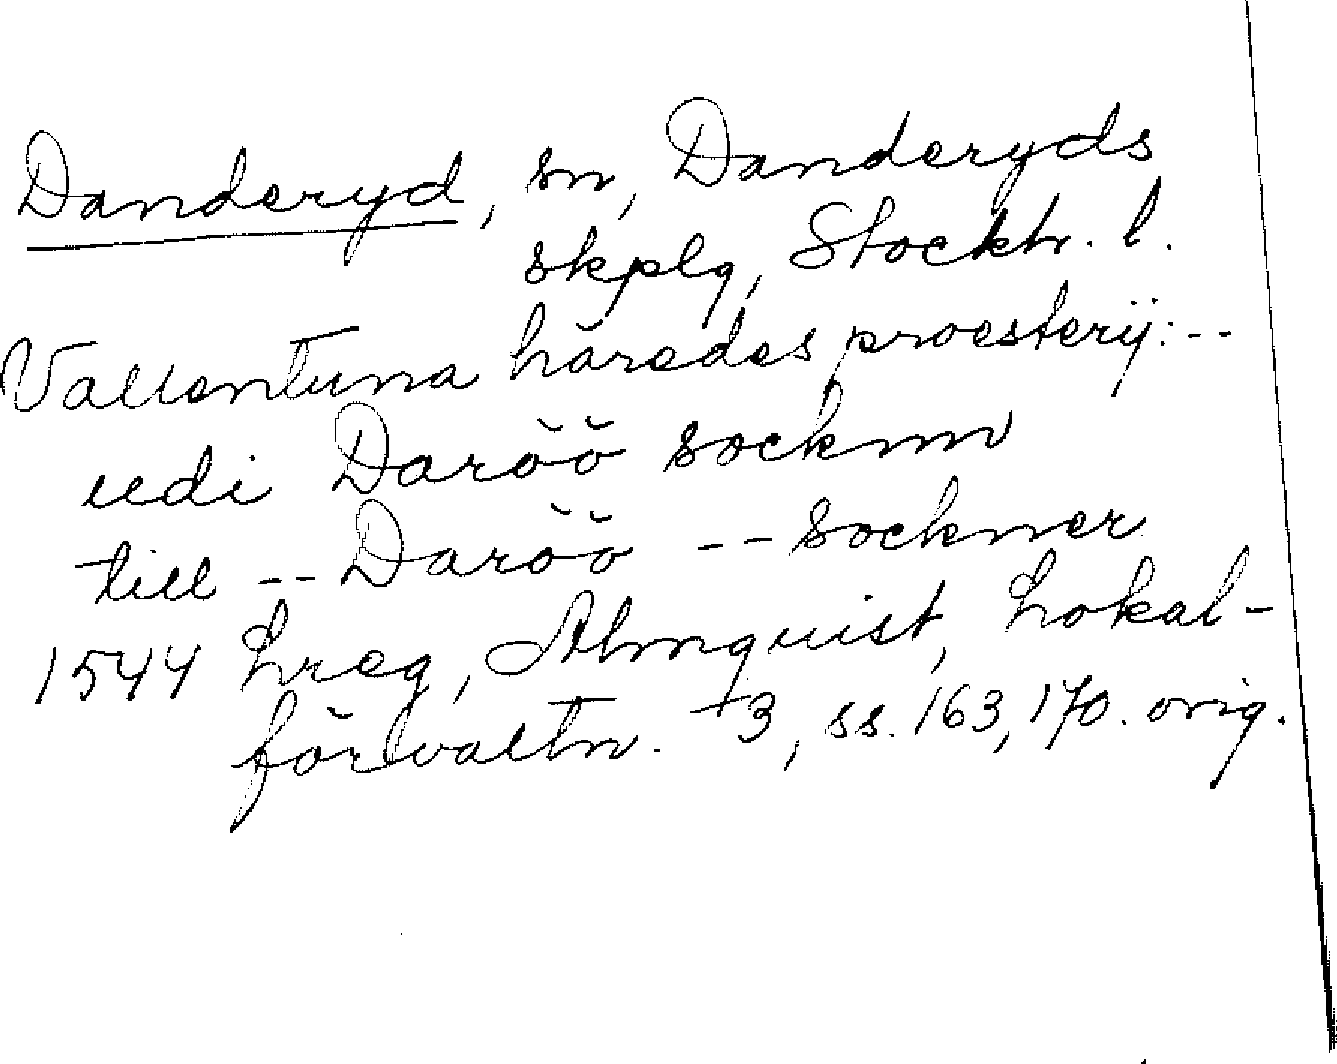 Danderyd, sn, Danderyds
skplg, Stockh. l.
Vallentuna häredes proesterij: --
udi Daröö socknn
till -- Daröö -- sockner
1544 Lreg, Almquist, Lokal-
förvaltn. +3, ss. 163, 170. orig.